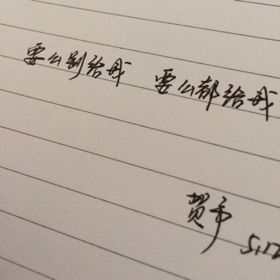 要么别给我 要么都给我
贺予
5.17